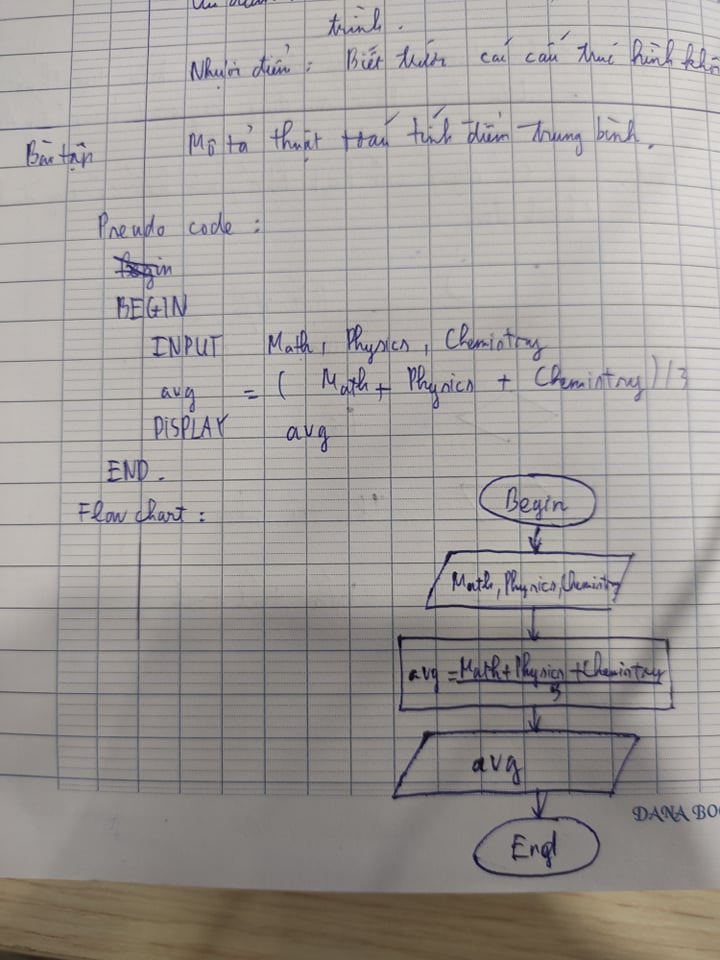 trình.
Nhược điểm : Biết trước các cấu trúc hình khô
Bài tập Mô tả thuật toán tính điểm trung bình.
Pseudo code :
BEGIN
INPUT Math, Physics, Chemistry
avg = ( Math + Physics + Chemistry) / 3
DISPLAY avg
END.
Flow chart :
Begin
Math, Physics, Chemistry
avg = Math + Physics + Chemistry
3
avg
End
DANA BOO